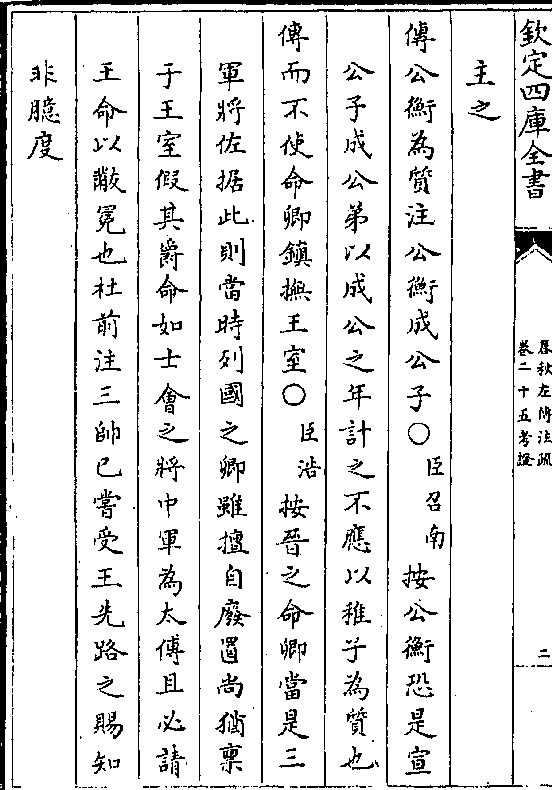 欽定四庫全書
春秋左傳注疏
卷二十五考證
二
主之
傳公衡為質注公衡成公子○臣召南按公衡恐是宣
公子成公弟以成公之年計之不應以稚子為質也
傳而不使命卿鎮撫王室○臣浩按晉之命卿當是三
軍將佐据此則當時列國之卿雖擅自廢置尚猶稟
于王室假其爵命如士會之將中軍為太傅且必請
王命以黻冕也杜前注三帥已嘗受王先路之賜知
非臆度